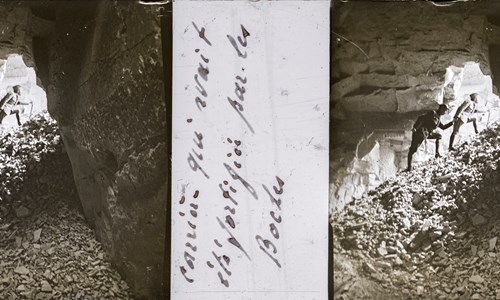 carrière qui avait
été fortifiée par les
Boches